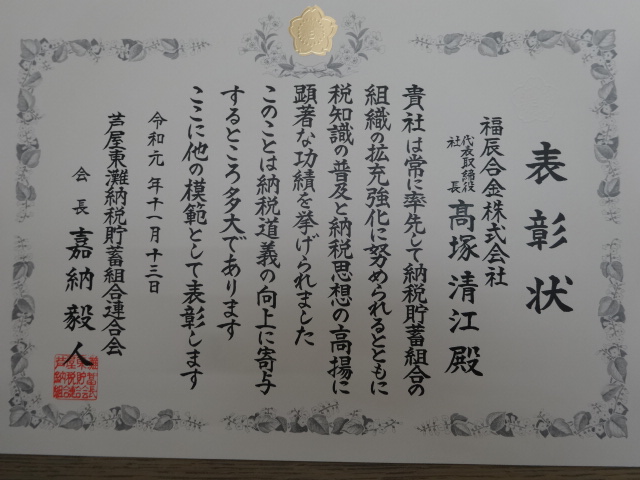 表彰状
福辰合金株式会社
代表取締役
社長
髙塚清江殿
貴社は常に率先して納税貯蓄組合の
組織の拡充強化に努められるとともに
税知識の普及と納税思想の高揚に
顕著な功績を挙げられました
このことは納税道義の向上に寄与
するところ多大であります
ここに他の模範として表彰します
令和元年十一月十三日
芦屋東灘納税貯蓄組合連合会
会長 嘉納毅人